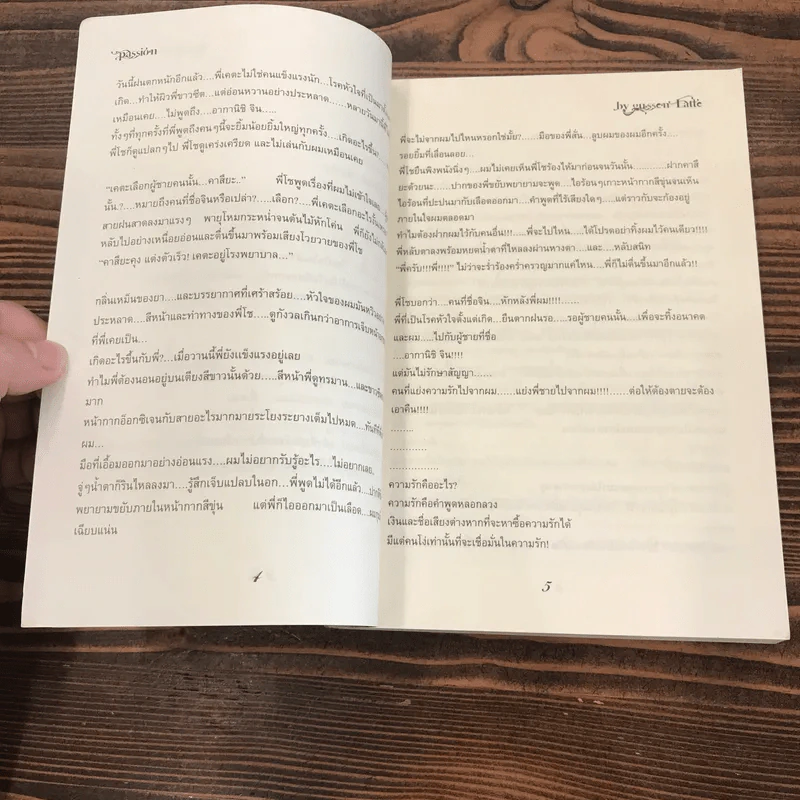 passion
วันนี้ฝนตกหนักอีกแล้ว....พี่เคตะไม่ใช่คนแข็งแรงนัก...โรคหัวใจที่เป็นมาตั้ง
เกิด...ทำให้ผิวพี่ขาวซีด...แต่อ่อนหวานอย่างประหลาด......หลายวันมานี้
เหมือนเคย....ไม่พูดถึง....อากานิชิ จิน.....
ทั้งๆที่ทุกครั้งที่พี่พูดถึงคนๆนี้จะยิ้มน้อยยิ้มใหญ่ทุกครั้ง....เกิดอะไรขึ้น
พี่โชก็ดูแปลกๆไป พี่โชดูเคร่งเครียด และไม่เล่นกับผมเหมือนเคย
"เคตะเลือกผู้ชายคนนั้น...คาสึยะ.." พี่โชพูดเรื่องที่ผมไม่เข้าใจเลย
นั้น.?....หมายถึงคนที่ชื่อจินหรือเปล่า?.....เลือก?....พี่เคตะเลือกอะไร
สายฝนสาดลงมาแรงๆ พายุโหมกระหน่ำจนต้นไม้หักโค่น พี่ก็ยังไม่
หลับไปอย่างเหนื่อยอ่อนและตื่นขึ้นมาพร้อมเสียงโวยวายของพี่โช
"คาสึยะคุง แต่งตัวเร็ว! เคตะอยู่โรงพยาบาล..."
กลิ่นเหม็นของยา....และบรรยากาศที่เศร้าสร้อย....หัวใจของผมมันหวิว
ประหลาด....สีหน้าและท่าทางของพี่โช....ดูกังวลเกินกว่าอาการเจ็บหน้าอก
ที่พี่เคยเป็น...
เกิดอะไรขึ้นกับพี่?...เมื่อวานนี้พี่ยังแข็งแรงอยู่เลย
ทำไมพี่ต้องนอนอยู่บนเตียงสีขาวนั้นด้วย.....สีหน้าพี่ดูทรมาน...และขาวซีด
มาก
หน้ากากอ็อกซิเจนกับสายอะไรมากมายระโยงระยางเต็มไปหมด....ทันทีที่
ผม...
มือที่เอื้อมออกมาอย่างอ่อนแรง....ผมไม่อยากรับรู้อะไร....ไม่อยากเลย.
จู่ๆน้ำตาก็รินไหลลงมา....รู้สึกเจ็บแปลบในอก...พี่พูดไม่ได้อีกแล้ว....ปาก
พยายามขยับภายในหน้ากากสีขุ่น แต่พี่ก็ไอออกมาเป็นเลือด....ผม
เฉียบแน่น
4
by gusseu Latte
พี่จะไม่จากผมไปไหนหรอกใช่มั้ย?......มือของพี่สั่น...ลูบผมของผมอีกครั้ง.
รอยยิ้มที่เลื่อนลอย...
พี่โชยืนพิงพนังนิ่งๆ....ผมไม่เคยเห็นพี่โชร้องไห้มาก่อนจนวันนั้น.........ฝากคาสึ
ยะด้วยนะ......ปากของพี่ขยับพยายามจะพูด....ไอร้อนๆเกาะหน้ากากสีขุ่นจนเห็น
ไอร้อนที่ปะปนมากับเลือดออกมา....คำพูดที่ไร้เสียงใดๆ....แต่ราวกับจะก้องอยู่
ภายในใจผมตลอดมา
ทำไมต้องฝากผมไว้กับคนอื่น!!!....พี่จะไปไหน....ได้โปรดอย่าทิ้งผมไว้คนเดียว!!!!
พี่หลับตาลงพร้อมหยดน้ำตาที่ไหลลงผ่านหางตา....และ....หลับสนิท
"พี่ครับ!!!พี่!!!!" ไม่ว่าจะร่ำร้องคร่ำครวญมากแค่ไหน....พี่ก็ไม่ตื่นขึ้นมาอีกแล้ว!!
พี่โชบอกว่า....คนที่ชื่อจิน....หักหลังพี่ผม!!!!......
พี่ที่เป็นโรคหัวใจตั้งแต่เกิด....ยืนตากฝนรอ.....รอผู้ชายคนนั้น.....เพื่อจะทิ้งอนาคต
และผม....ไปกับผู้ชายที่ชื่อ
....อากานิชิ จิน!!!!
แต่มันไม่รักษาสัญญา......
คนที่แย่งความรักไปจากผม......แย่งพี่ชายไปจากผม!!!!......ต่อให้ต้องตายจะต้อง
เอาคืน!!!!
........
.............
...............
ความรักคืออะไร?
ความรักคือคำพูดหลอกลวง
เงินและชื่อเสียงต่างหากที่จะหาซื้อความรักได้
มีแต่คนโง่เท่านั้นที่จะเชื่อมั่นในความรัก!
5